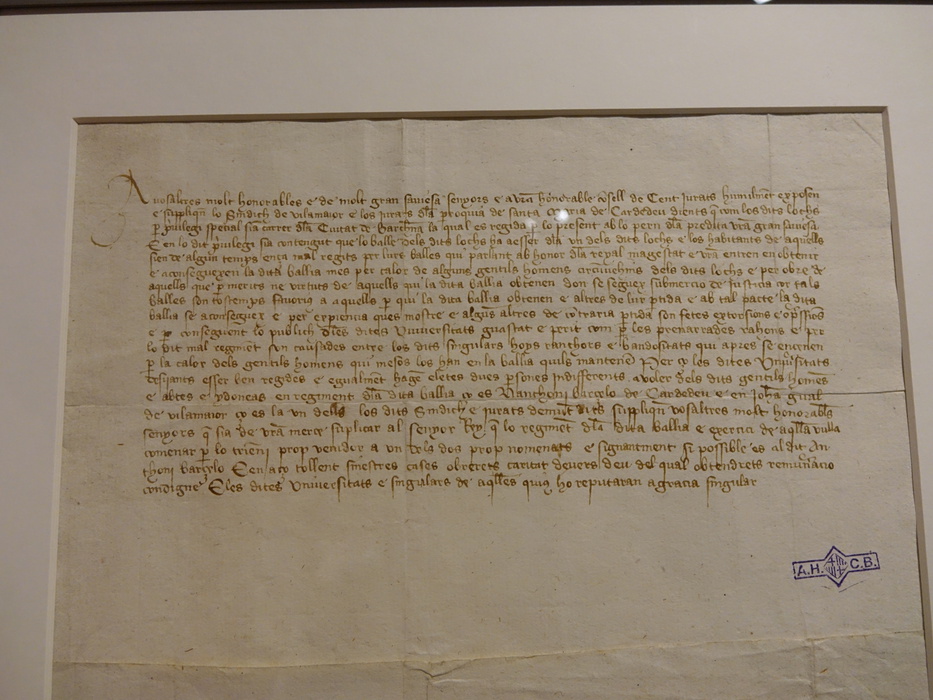 A vosaltres molt honorables e de molt gran saviesa senyors e a vr̃a honorable cõsell de Cent jurats humilmẽt exposen
e suppliquẽ lo Sindich de vilamaior e los jurats dla proquia de santa maria de Cardedeu dients q̃ com los dits lochs
p̱ p̱uilegi special sia carrer dla Ciutat de Barchña la qual es regida lo present ab lo dla predita vr̃a gran saviesa
E en lo dit p̱uilegi sia contengut que lo balle dels dits lochs ha aesser dla vn dels dits lochs e los habitants de aquells
sien de algun temps ença mal regits per lurs balles qui parlant ab honor dla reyal magestat e vr̃a entren en obtenir
e aconsegueren la dita ballia mes per calor de alguns gentils homens circũvehins dels dits lochs e per obre de
aquells que p̱ merits ne virtuts de aquells qui la dita ballia obtenen don se segueix submercio de justicia cor tals
balles son tostemps favorius a aquells p̱ qui la dita ballia obtenen e altres de lur ptida e ab tal pacte la dita
ballia se aconsegueix e per expiencia ques mostre e alguns altres de cõtraria ptida son fetes extorsions e op̱ssions
e p̱ conseguent lo publich dles dites Vniuersitats guastat e perit com p̱ les prenarrades rahons e per
lo dit mal regimẽt son causades entre los dits singulars hoys ranchors e bandositats qui apres se encenen
p̱ la calor dels gentils homens qui mesos los han en la ballia quils mantenẽ Per ço les dites Vniu̾sitats
desijants esser ben regides e egualmẽt hagẽ eletes dues p̱sones indifferents a voler dels dits gentils homẽs
e abtes e ydoneas en regiment dla dita ballia ço es Nanthoni barcelo de Cardedeu e en Johã
de vilamaior ço es la vn dells los dits Sindich e jurats demũt dits suppliquẽ vosaltres molt honorabls
senyors q̃ sia de vr̃a merce suplicar al senyor Rey q̃ lo regimẽt dla dita ballia e exercici de aqlla vulla
comenar p̱ lo trienni prop venidor a vn dels dos prop nomenats e signantment si possible es al dit An
thoni barcelo E en aço tollent sinestres casos obrerets caritat deuers deu del qual obtendrets remunacio
condigne E les dites Vniuersitats e singulars de aqlles quius ho reputaran a gracia singular
A.H. C.B.